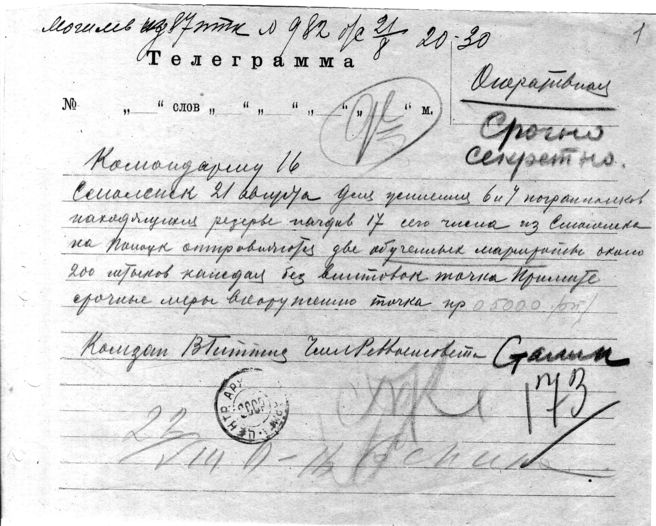 Могилев из 87 птк № 982 21/8 20-30
1
Телеграмма
Оперативная
№ „ “ слов „ “ „ “ „ “ „ “ м.
Срочно
секретно.
Командарму 16
Смоленск 21 августа Для усиления 6 и 7 погранполков
находящихся резерве начдив 17 сего числа из Смоленска
на Полоцк отправляются две обученных маршроты около
200 штыков каждая без винтовок точка Примите
срочные меры вооружению точка нр
Комзап Чл Реввоенсовета Сталин
173
22